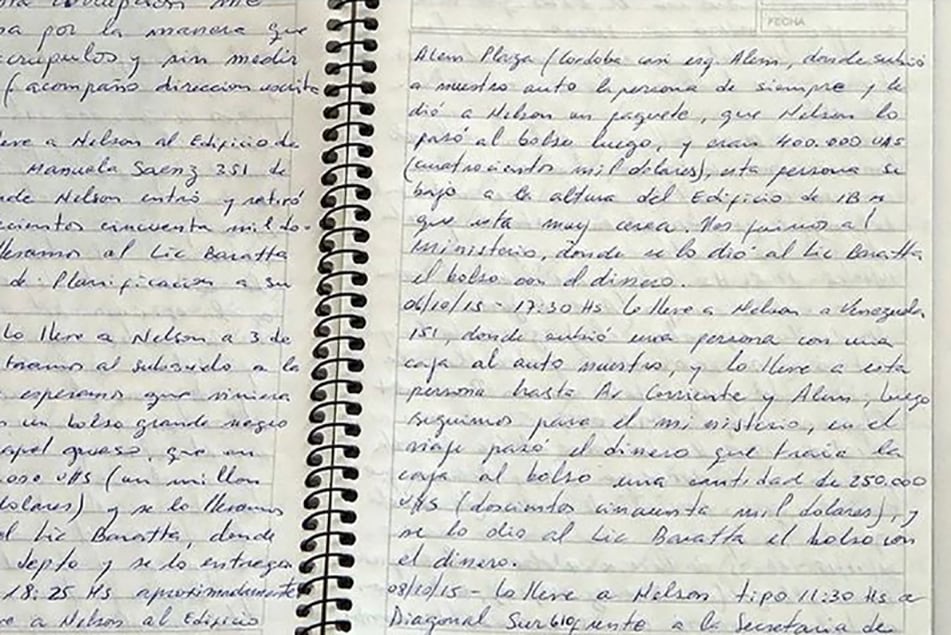 por la manera que
escrupulos y sin medir
(acompaño direccion escrita
lleve a Nelson al Edificio de
Manuela Saenz 351 de
donde Nelson entró y retiró
cincuenta mil do-
llevamos al Lic Baratta
de Planificacion a su
Lo lleve a Nelson a 3 de
al subsuelo a la
esperamos que viniera
un bolso grande negro
papel grueso, que
000 U$S (un millon
dolares) y se lo llevamos
al Lic Baratta, donde
depto y se lo entrega
18:25 Hs aproximadamente
a Nelson al Edificio
FECHA
Alem Plaza (Cordoba casi esq Alem, donde subió
a nuestro auto la persona de siempre y le
dió a Nelson un paquete, que Nelson lo
pasó al bolso luego, y eran 400.000 U$S
(cuatrocientos mil dolares), esta persona se
bajo a la altura del Edificio de IBM
que esta muy cerca. Nos fuimos al
ministerio, donde se lo dió al Lic Baratta
el bolso con el dinero.
06/10/15 - 17:30 Hs Lo lleve a Nelson a Venezuela
151, donde subió una persona con una
caja al auto nuestro, y lo lleve a esta
persona hasta Av Corriente y Alem, luego
seguimos para el ministerio, en el
viaje pasó el dinero que traia la
caja al bolso una cantidad de 250.000
U$S (doscientos cincuenta mil dolares), y
se lo dio al Lic Baratta el bolso con
el dinero.
08/10/15 - Lo lleve a Nelson tipo 11:30 Hs a
Diagonal Sur 610 frente a la Secretaria de